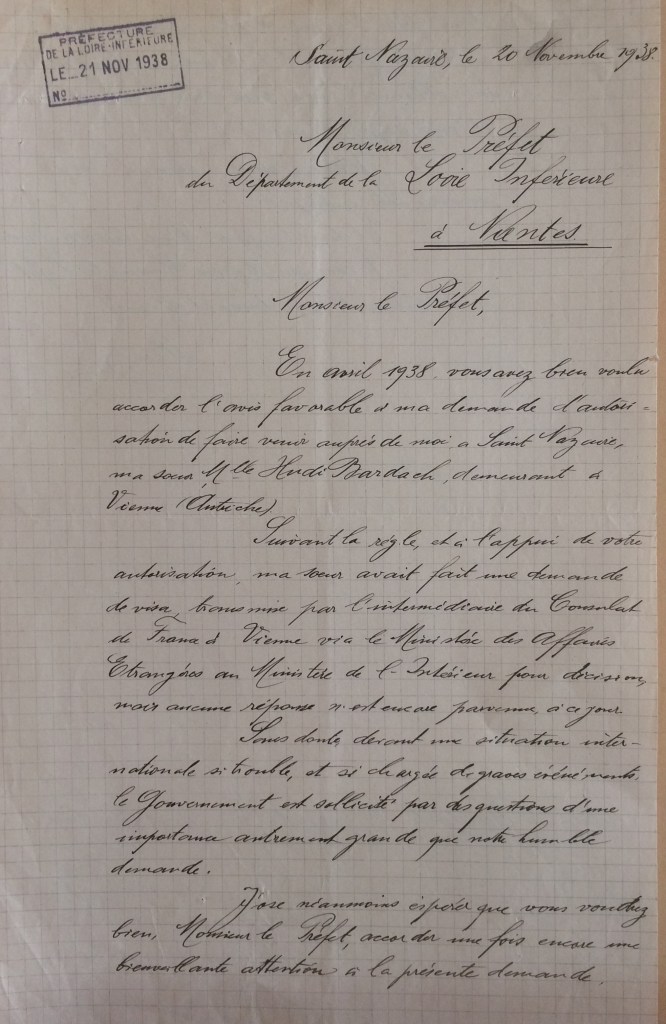 PRÉFECTURE
DE LA LOIRE-INFÉRIEURE
LE 21 NOV 1938
No
Saint Nazaire, le 20 Novembre 1938.
Monsieur le Préfet
du Département de la Loire Inferieure
à Nantes.
Monsieur le Préfet,
En avril 1938, vous avez bien voulu
accorder l'avis favorable à ma demande d'autori-
sation de faire venir auprès de moi, a Saint Nazaire,
ma sœur Mlle Hudi Bardach, demeurant à
Vienne (Autriche)
Suivant la règle, et à l'appui de votre
autorisation, ma sœur avait fait une demande
de visa, transmise par l'intermédiaire du Consulat
de France à Vienne via le Ministère des Affaires
Etrangères au Ministère de l'Intérieur pour décision,
mais aucune réponse n'est encore parvenue, à ce jour.
Sans doute, devant une situation inter-
nationale si trouble, et si chargée de graves événements,
le Gouvernement est sollicité par des questions d'une
importance autrement grande que notre humble
demande.
J'ose néanmoins espérer que vous voudrez
bien, Monsieur le Préfet, accorder une fois encore une
bienveillante attention à la présente demande.